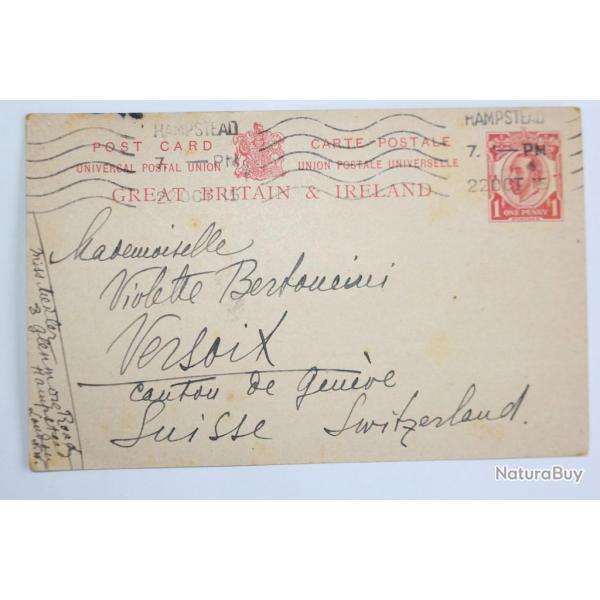 HAMPSTEAD HAMPSTEAD
POST CARD CARTE POSTALE
7. — PM 7. — PM
UNIVERSAL POSTAL UNION UNION POSTALE UNIVERSELLE
22 OCT 15 22 OCT 15
GREAT BRITAIN & IRELAND
1 ONE PENNY 1
Mademoiselle
Violette Bertoncini
Versoix
Canton de Genève
Suisse Switzerland.
Miss
3 Glenmore Road
Hampstead
London
NaturaBuy